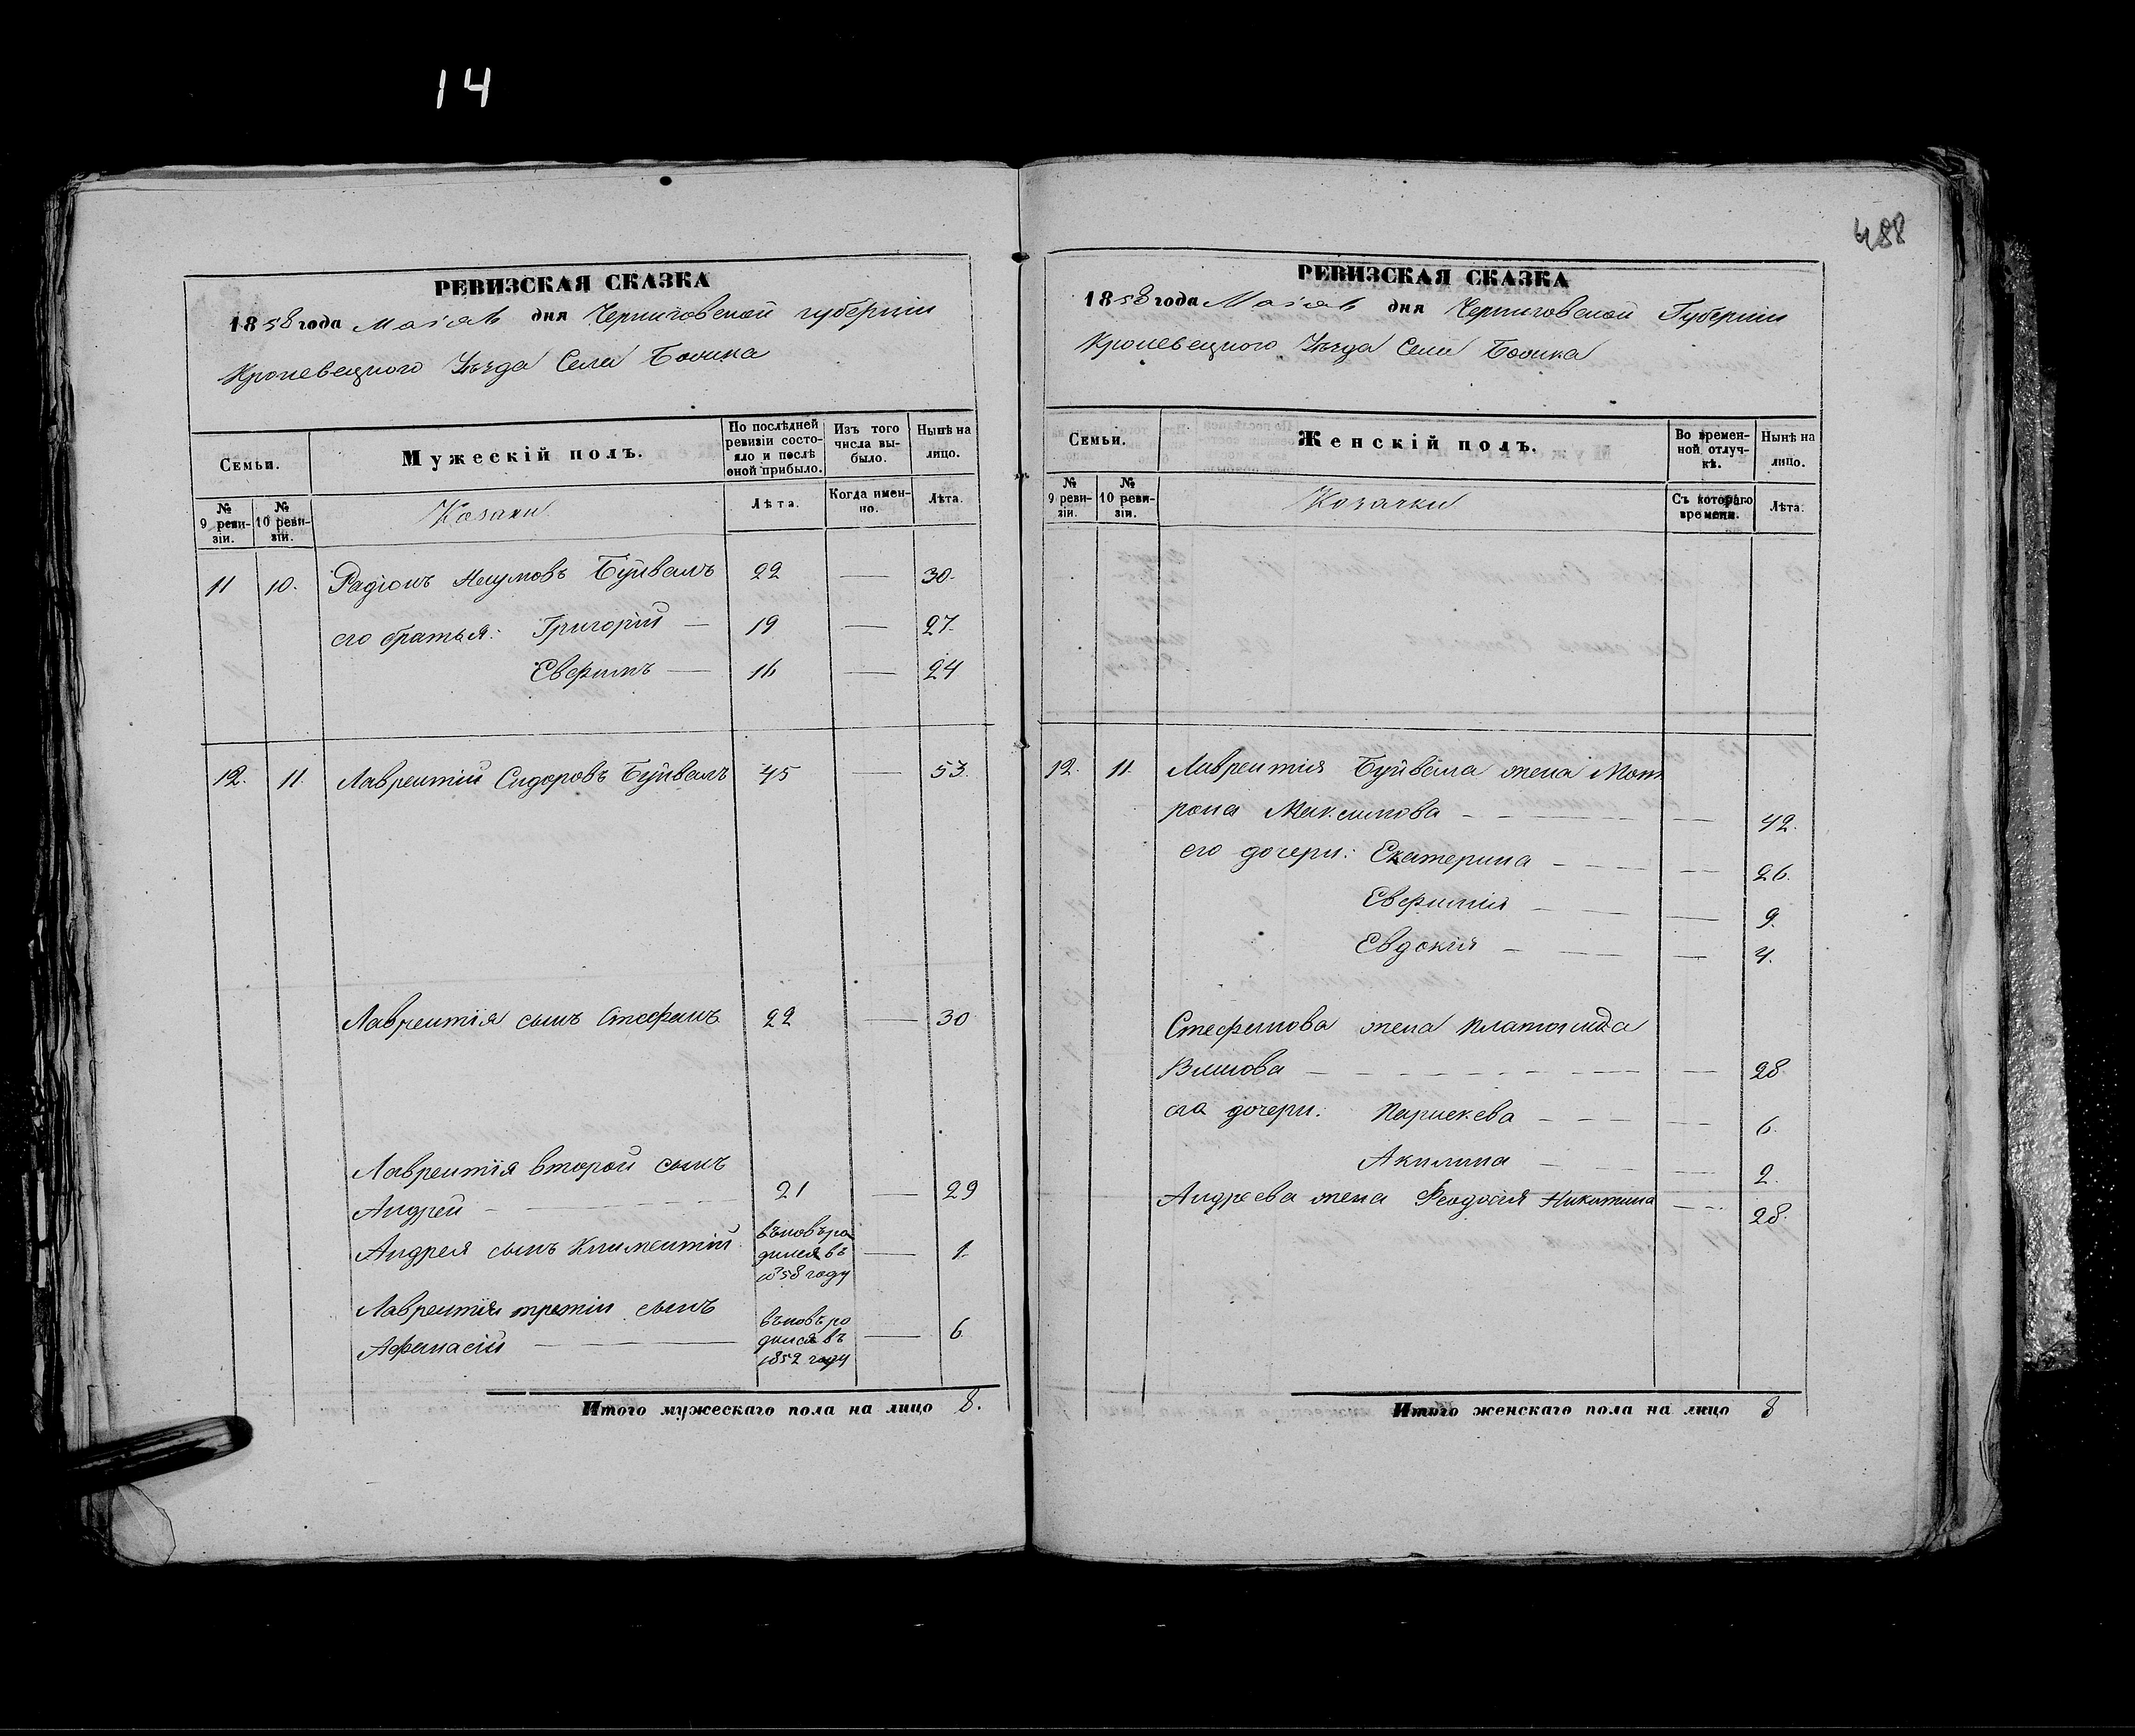 14
488
РЕВИЗСКАЯ СКАЗКА
1858 года Маія дня Черниговской губерніи
Кролевецкого Уѣзда Села
Семьи.
Мужескій полъ.
По послѣдней ревизіи состояло и послѣ оной прибыло.
Изъ того числа выбыло.
Нынѣ на лицо.
№ 9 ревизіи.
№ 10 ревизіи.
Козаки
Лѣта.
Когда именно.
Лѣта.
11 10. Радіонъ Наумовъ Буйвалъ 22 — 30.
его братья: Григорій — 19 — 27.
Евфимъ — 16 — 24
12. 11. Лаврентій Сидоровъ Буйвалъ 45 — 53.
Лаврентія сынъ Стефанъ 22 — 30
Лаврентія второй сынъ
Андрей — 21 — 29
Андрея сынъ Климентій вновь родился въ 1858 году — 1.
Лаврентія третій сынъ
Афанасій — вновь родился въ 1852 году — 6
Итого мужескаго пола на лицо 8.
РЕВИЗСКАЯ СКАЗКА
1858 года Маія дня Черниговской Губерніи
Кролевецкого Уѣзда Села
Семьи.
Женскій полъ.
Во временной отлучкѣ.
Нынѣ на лицо.
№ 9 ревизіи.
№ 10 ревизіи.
Козачки
Съ котораго времени.
Лѣта.
12. 11. Лаврентія Буйвала жена Мот
рона Максимова — — 42.
его дочери: Екатерина — — 26.
Евфимія — — 9.
Евдокія — — 4.
Стефанова жена
— — 28
его дочери: Параскева — — 6.
Акилина — — 2.
Андреева жена Феодосія Никитина — 28.
Итого женскаго пола на лицо 8